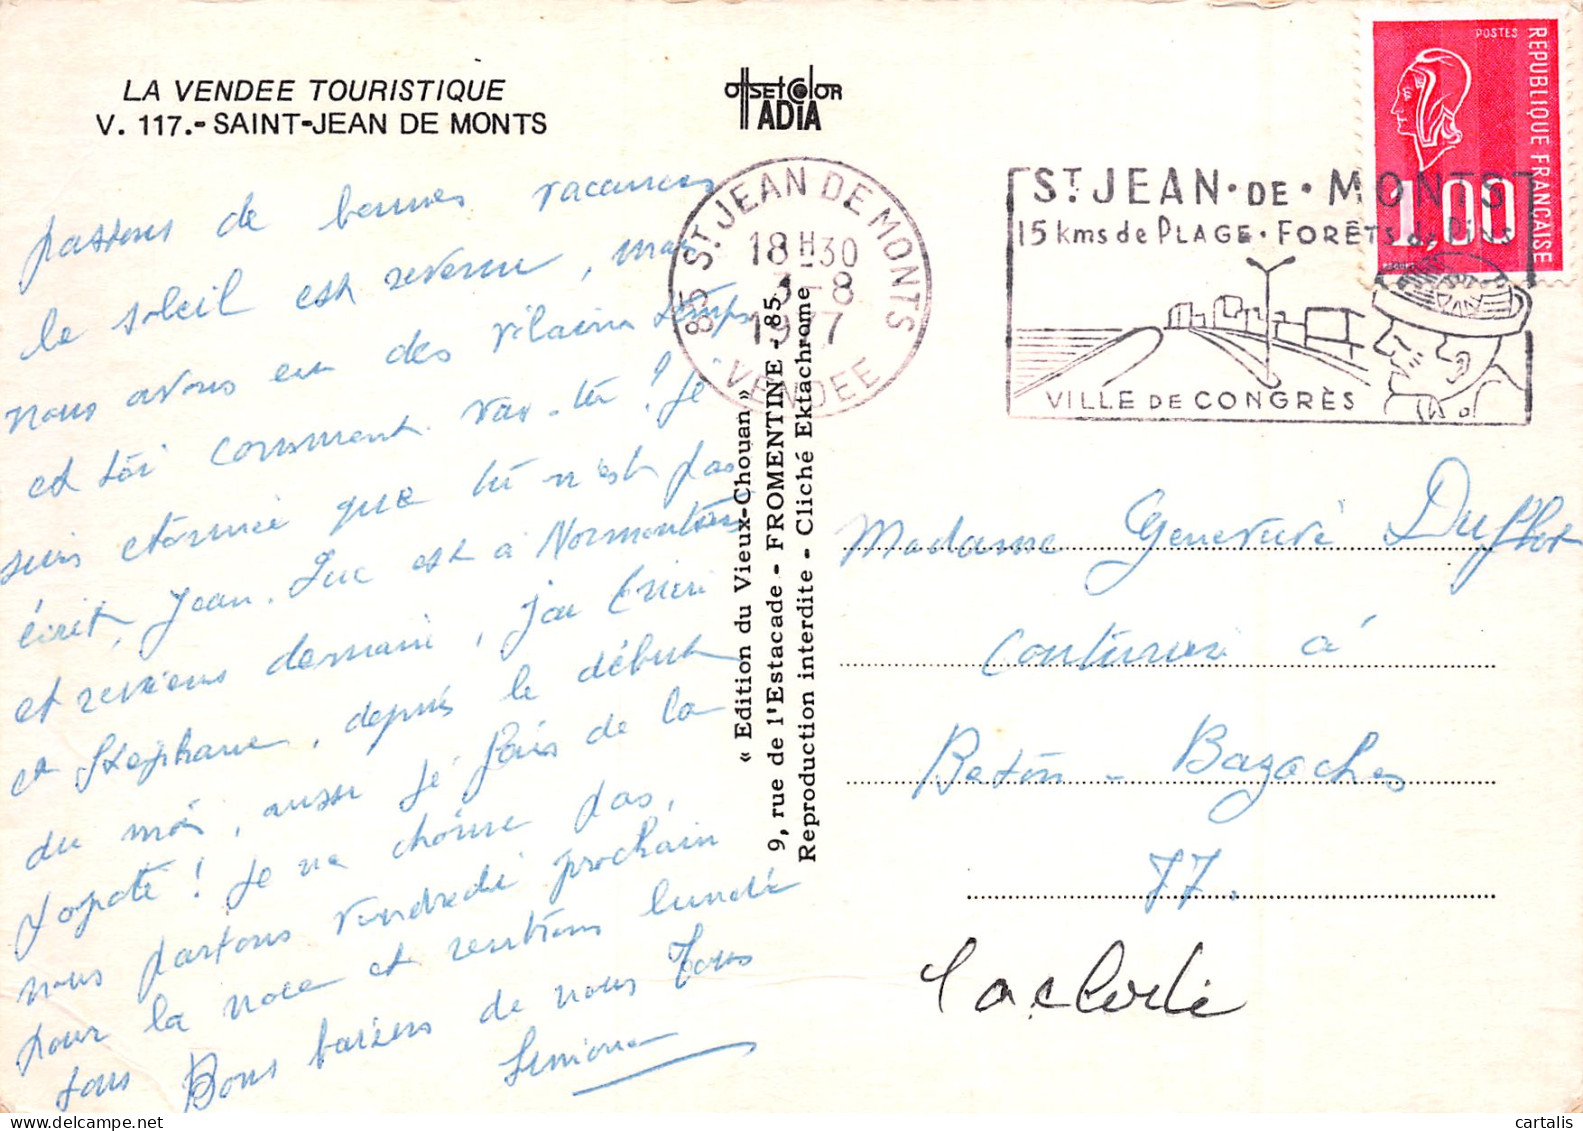 LA VENDEE TOURISTIQUE
V. 117.- SAINT-JEAN DE MONTS
offsetcolor
ADIA
passons de bonnes vacances
le soleil est revenu, mais
nous avons eu des vilains temps
et toi comment vas-tu ! Je
suis étonnée que tu n'est pas
écrit, Jean-Luc est à Noirmoutier
et reviens demain, j'ai
et Stéphane, depuis le début
du mois, aussi je fais de la
! Je ne chôme pas,
nous partons vendredi prochain
pour la noce et rentrons lundi
tous Bons baisers de nous tous
Simone
« Edition du Vieux-Chouan »
9, rue de l'Estacade - FROMENTINE - 85
Reproduction interdite - Cliché Ektachrome
85 ST JEAN DE MONTS
18 H 30
3 - 8
1977
VENDEE
ST JEAN • DE • MONTS
15 kms de PLAGE • FORÊTS de Pins
VILLE DE CONGRÈS
POSTES
REPUBLIQUE FRANÇAISE
1,00
Madame Geneviève Duflot
à
Beton - Bazoches
77.
cartalis